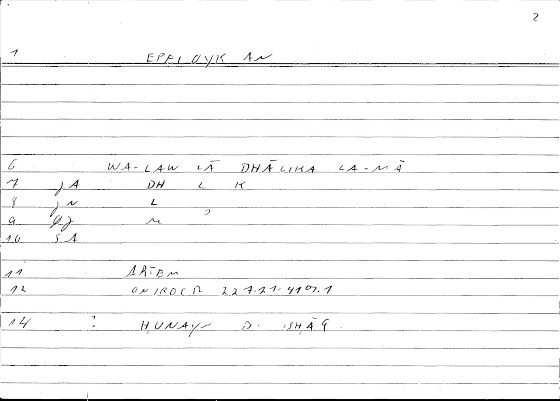 2
1 EPEIDYK AN
6 WA-LAW LĀ DHĀLIKA LA-MĀ
7 jA DH L K
8 jN L
9 M
10 SA
11 ARTEM
12 ONIROCR 227.21-4107.1
14 : ḤUNAYN B. ISḤĀQ